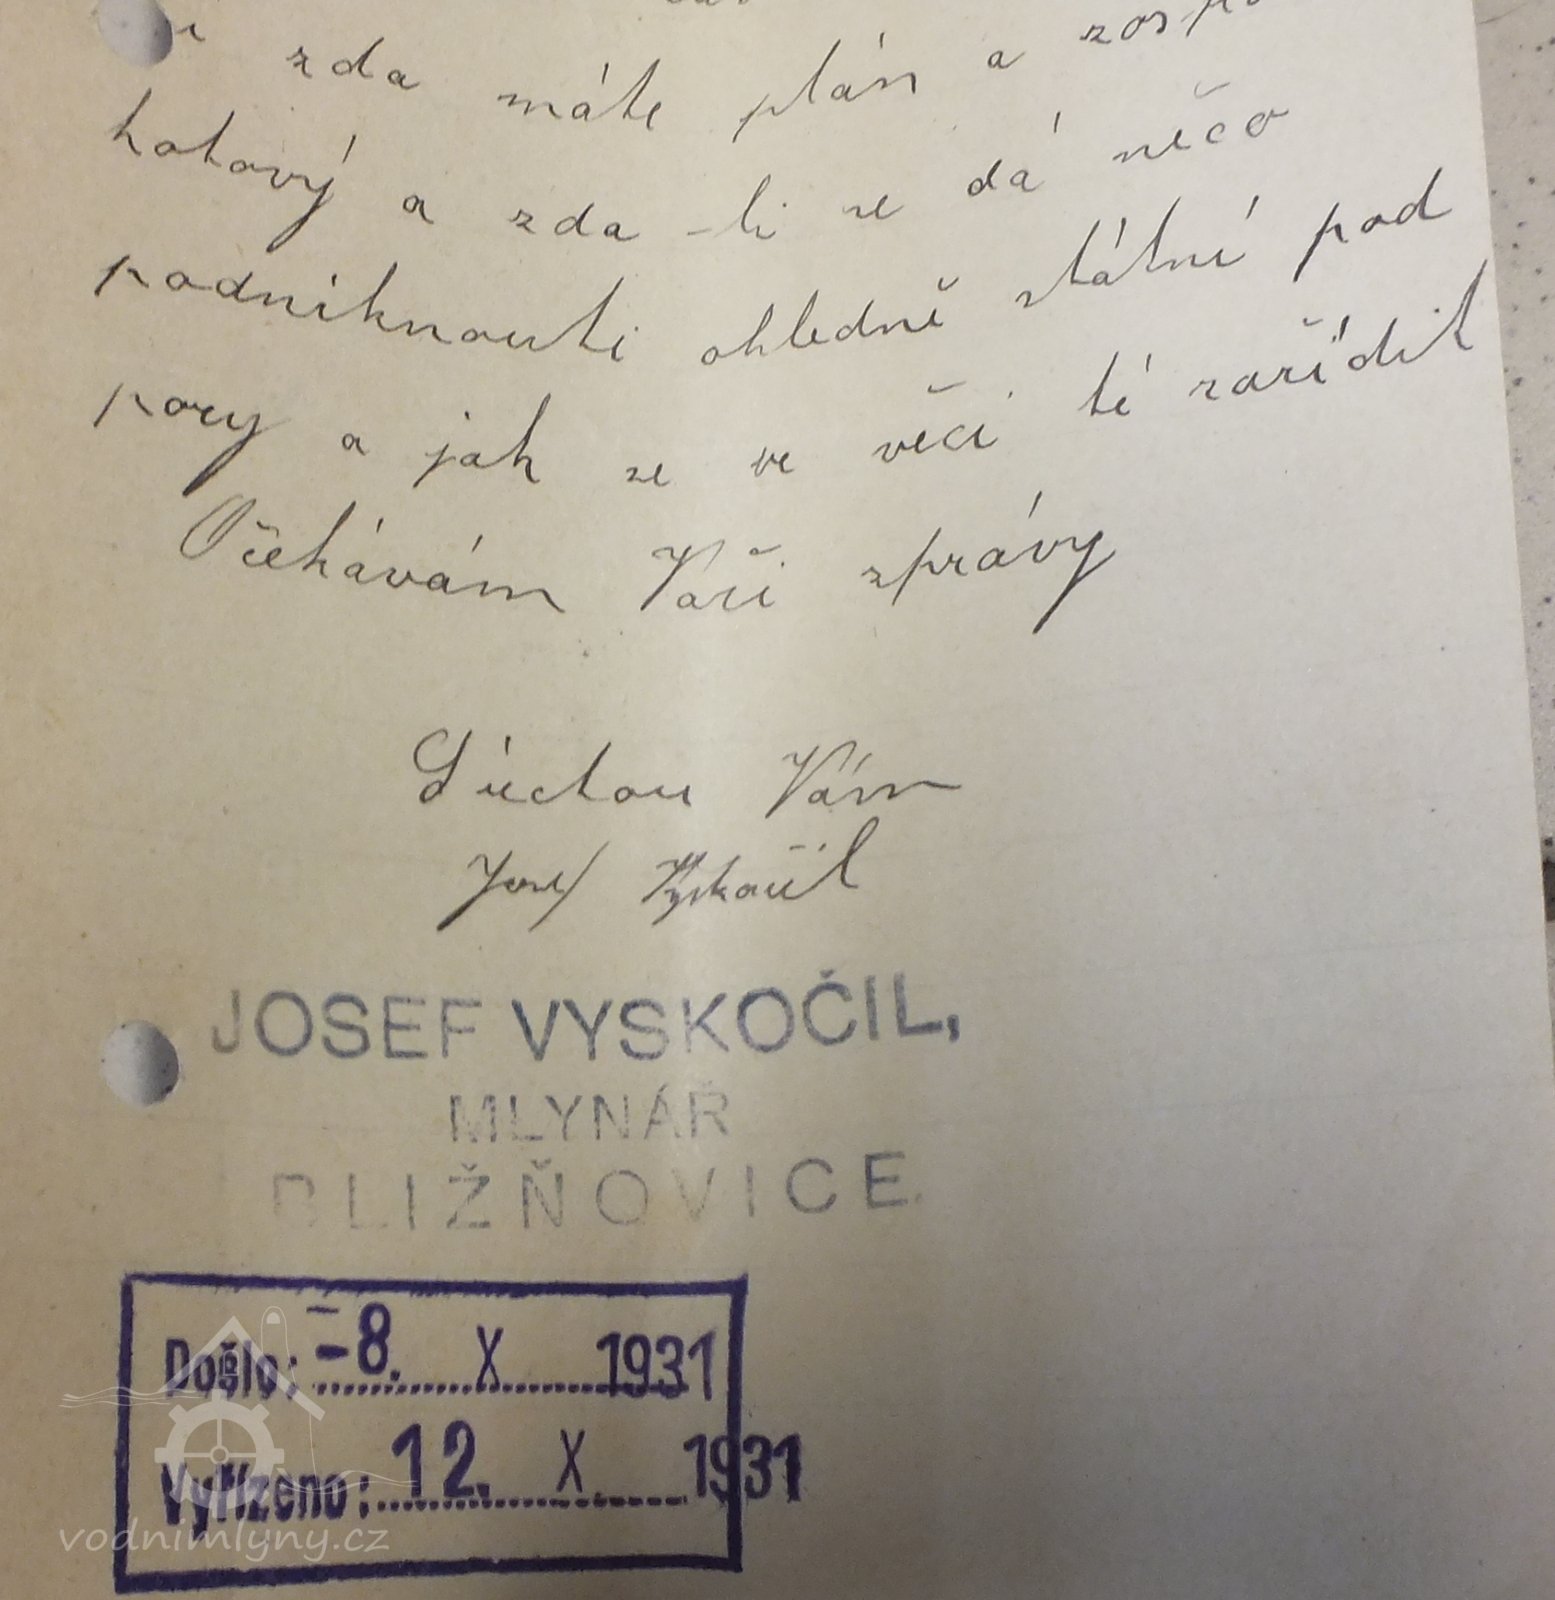 zda máte plán a
hotový a zda-li se dá něčo
podniknouti ohledně státní pod
pory a jak se ve věci té zařídit
Očekávám Vaši zprávy
S úctou Vám
Josef Vyskočil
JOSEF VYSKOČIL,
MLYNÁŘ
BLIŽŇOVICE
Došlo: -8. X 1931
Vyřízeno: 12. X 1931
vodnimlyny.cz